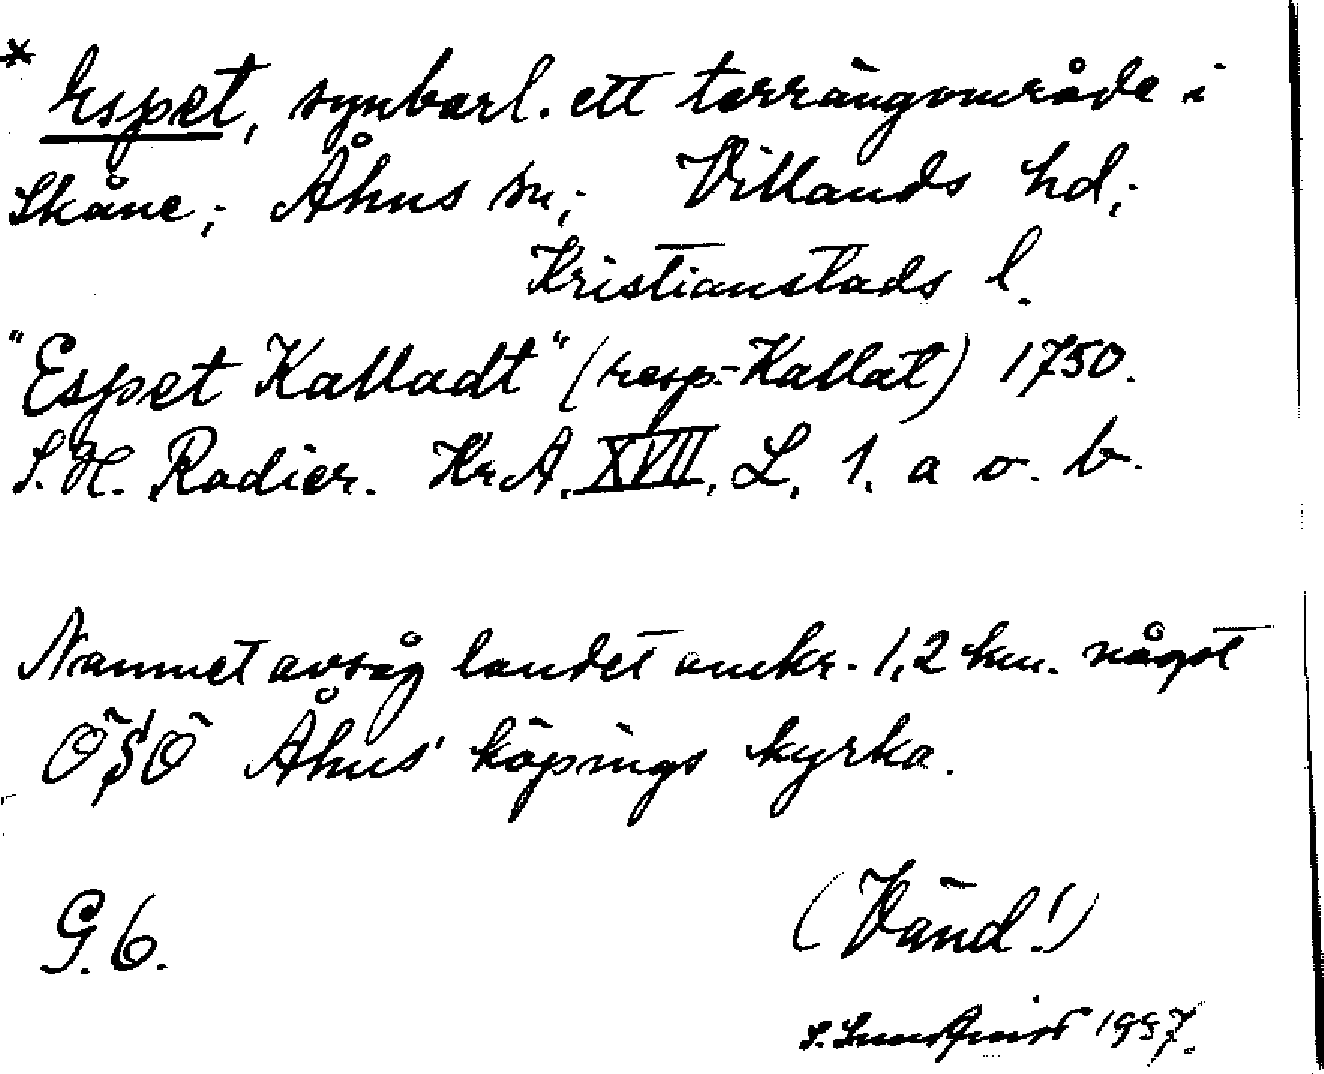 * Espet, synbarl. ett terrängområde i
Skåne; Åhus sn; Villands hd;
Kristianstads l.
"Espet Kalladt" (resp. Kallat) 1750.
S. N. Radier. Kr. A. XVII. L. 1. a o. b.
Namnet avsåg landet omkr. 1,2 km. något
ÖSÖ Åhus' köpings kyrka.
G. 6.
(Vänd!)
S. Lundqvist 1997.